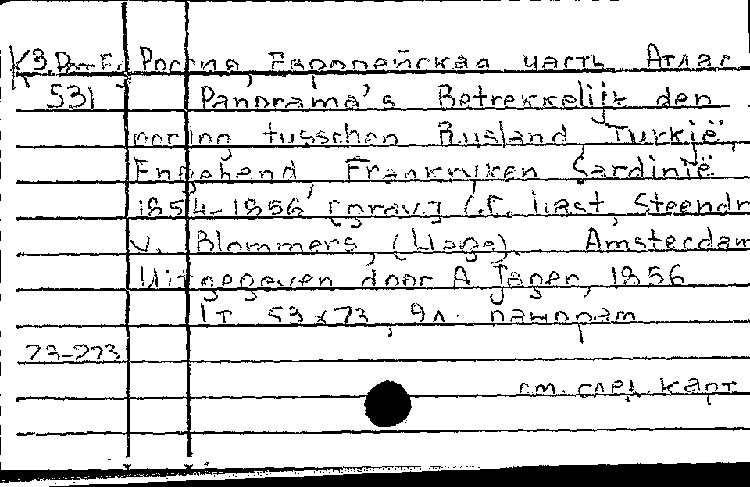 К3. Россия, Европейская часть Атлас
531 Panorama's Betrekkelijk den
oorlog tusschen Rusland, Turkjë,
Engeland, Frankryken Sardinië
1854-1856 [grav.] C.C. Last, Steendr
v. Blommers, (Haga). Amsterdam
Uitgegeven door A Jager, 1856
1т 53x73, 9л. панорам
73-273
см. след. карт